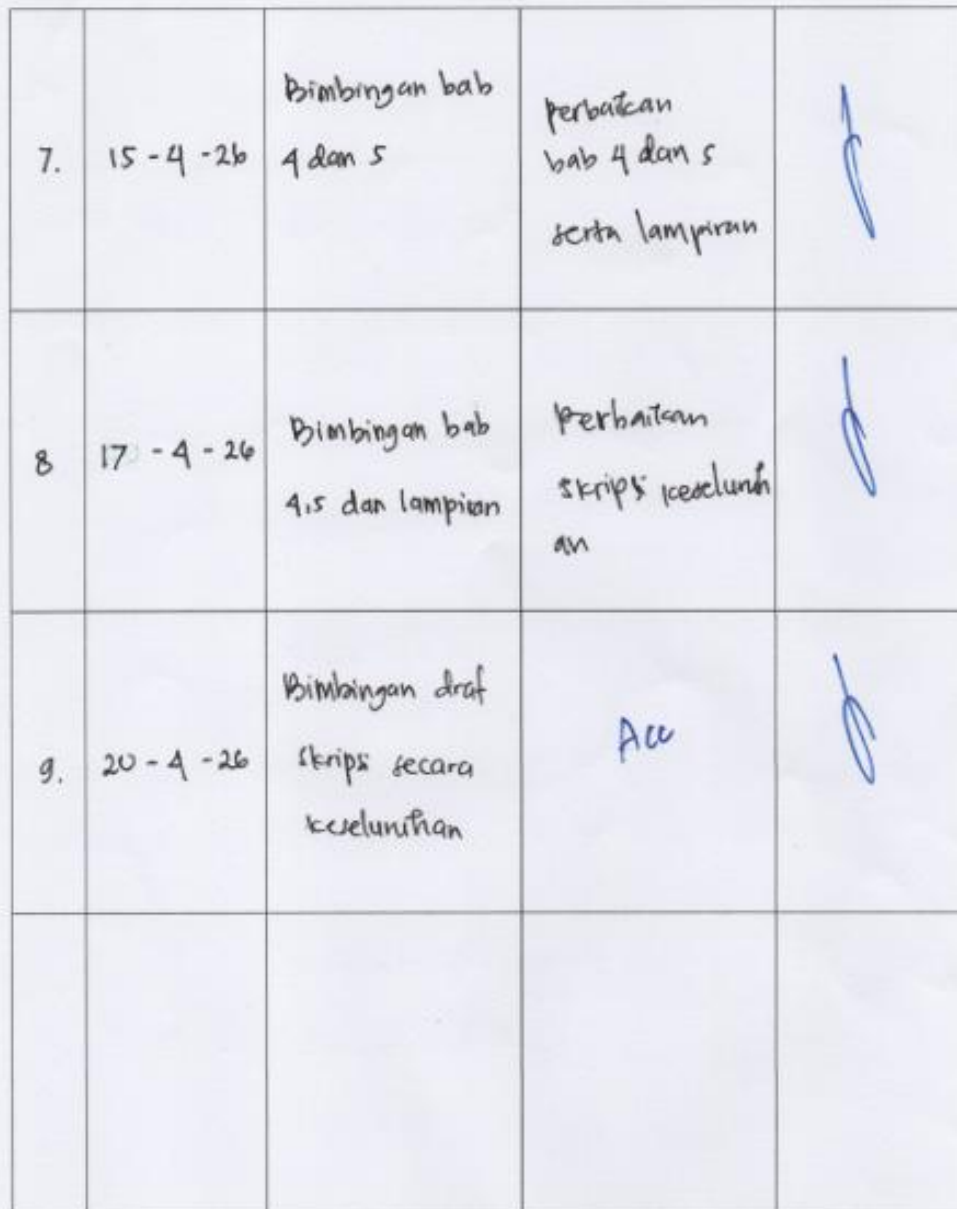 7.
15 - 4 - 26
Bimbingan bab
4 dan 5
perbaikan
bab 4 dan 5
serta lampiran
8
17 - 4 - 26
Bimbingan bab
4,5 dan lampiran
Perbaikan
skripsi keseluruh
an
9.
20 - 4 - 26
Bimbingan draf
skripsi secara
keseluruhan
Acc